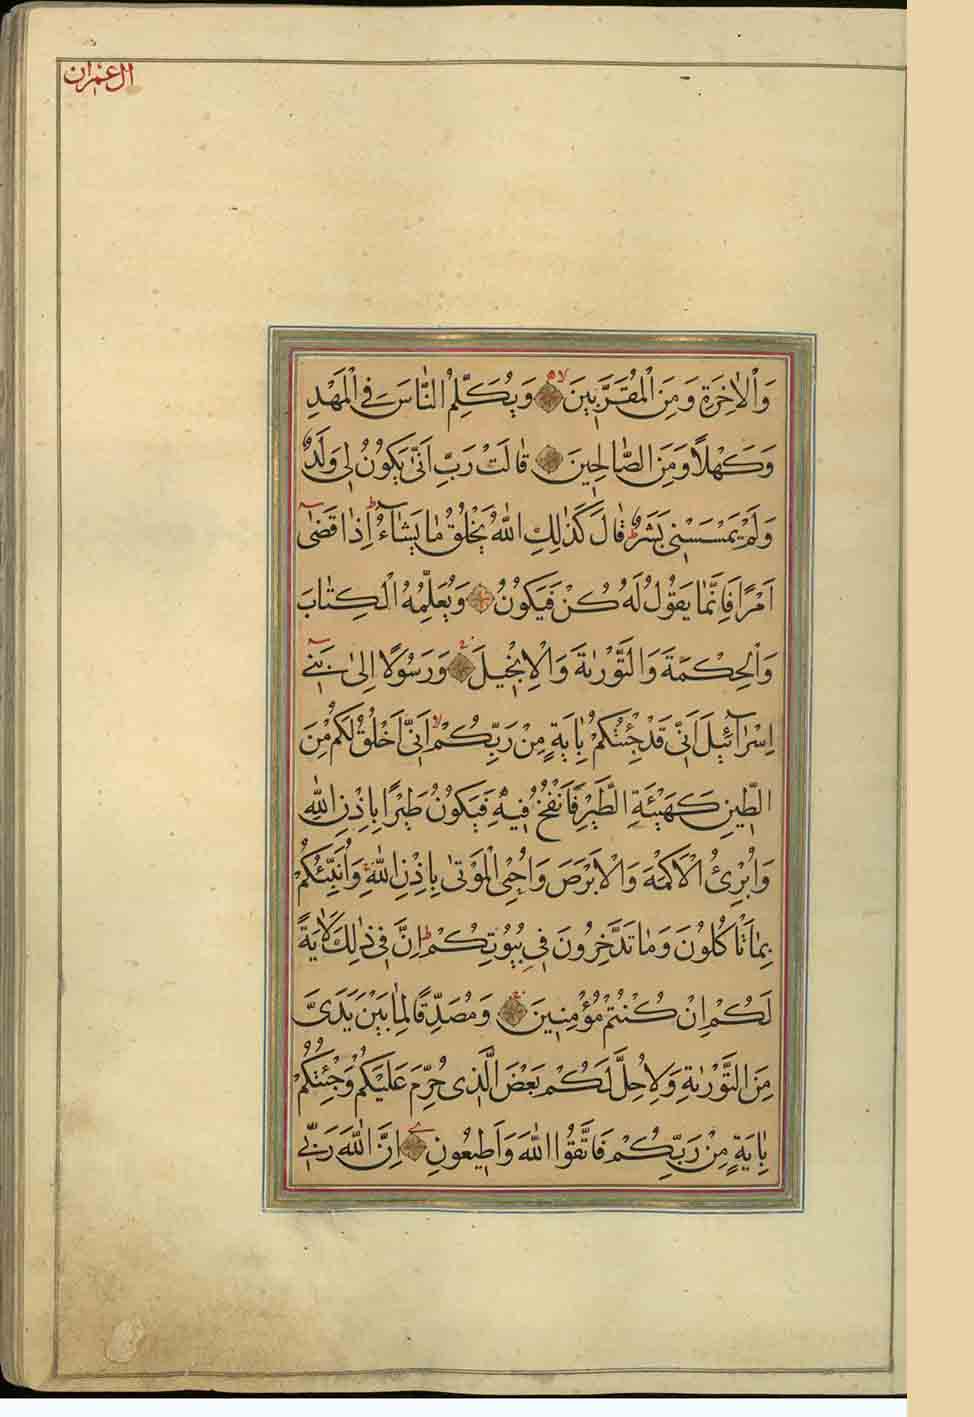 ال عمران
وَالْاٰخِرَةِ وَمِنَ الْمُقَرَّبِينَ وَيُكَلِّمُ النَّاسَ فِي الْمَهْدِ
وَكَهْلًا وَمِنَ الصَّالِحِينَ قَالَتْ رَبِّ اَنّٰى يَكُونُ لِي وَلَدٌ
وَلَمْ يَمْسَسْنِي بَشَرٌ قَالَ كَذٰلِكِ اللّٰهُ يَخْلُقُ مَا يَشَآءُ اِذَا قَضٰٓى
اَمْرًا فَاِنَّمَا يَقُولُ لَهُ كُنْ فَيَكُونُ وَيُعَلِّمُهُ الْكِتَابَ
وَالْحِكْمَةَ وَالتَّوْرٰيةَ وَالْاِنْجِيلَ وَرَسُولًا اِلٰى بَنِيٓ
اِسْرَآئِيلَ اَنِّي قَدْ جِئْتُكُمْ بِاٰيَةٍ مِنْ رَبِّكُمْ اَنِّيٓ اَخْلُقُ لَكُمْ مِنَ
الطِّينِ كَهَيْئَةِ الطَّيْرِ فَاَنْفُخُ فِيهِ فَيَكُونُ طَيْرًا بِاِذْنِ اللّٰهِ
وَاُبْرِئُ الْاَكْمَهَ وَالْاَبْرَصَ وَاُحْيِ الْمَوْتٰى بِاِذْنِ اللّٰهِ وَاُنَبِّئُكُمْ
بِمَا تَاْكُلُونَ وَمَا تَدَّخِرُونَ فِي بُيُوتِكُمْ اِنَّ فِي ذٰلِكَ لَاٰيَةً
لَكُمْ اِنْ كُنْتُمْ مُؤْمِنِينَ وَمُصَدِّقًا لِمَا بَيْنَ يَدَيَّ
مِنَ التَّوْرٰيةِ وَلِاُحِلَّ لَكُمْ بَعْضَ الَّذِي حُرِّمَ عَلَيْكُمْ وَجِئْتُكُمْ
بِاٰيَةٍ مِنْ رَبِّكُمْ فَاتَّقُوا اللّٰهَ وَاَطِيعُونِ اِنَّ اللّٰهَ رَبِّي